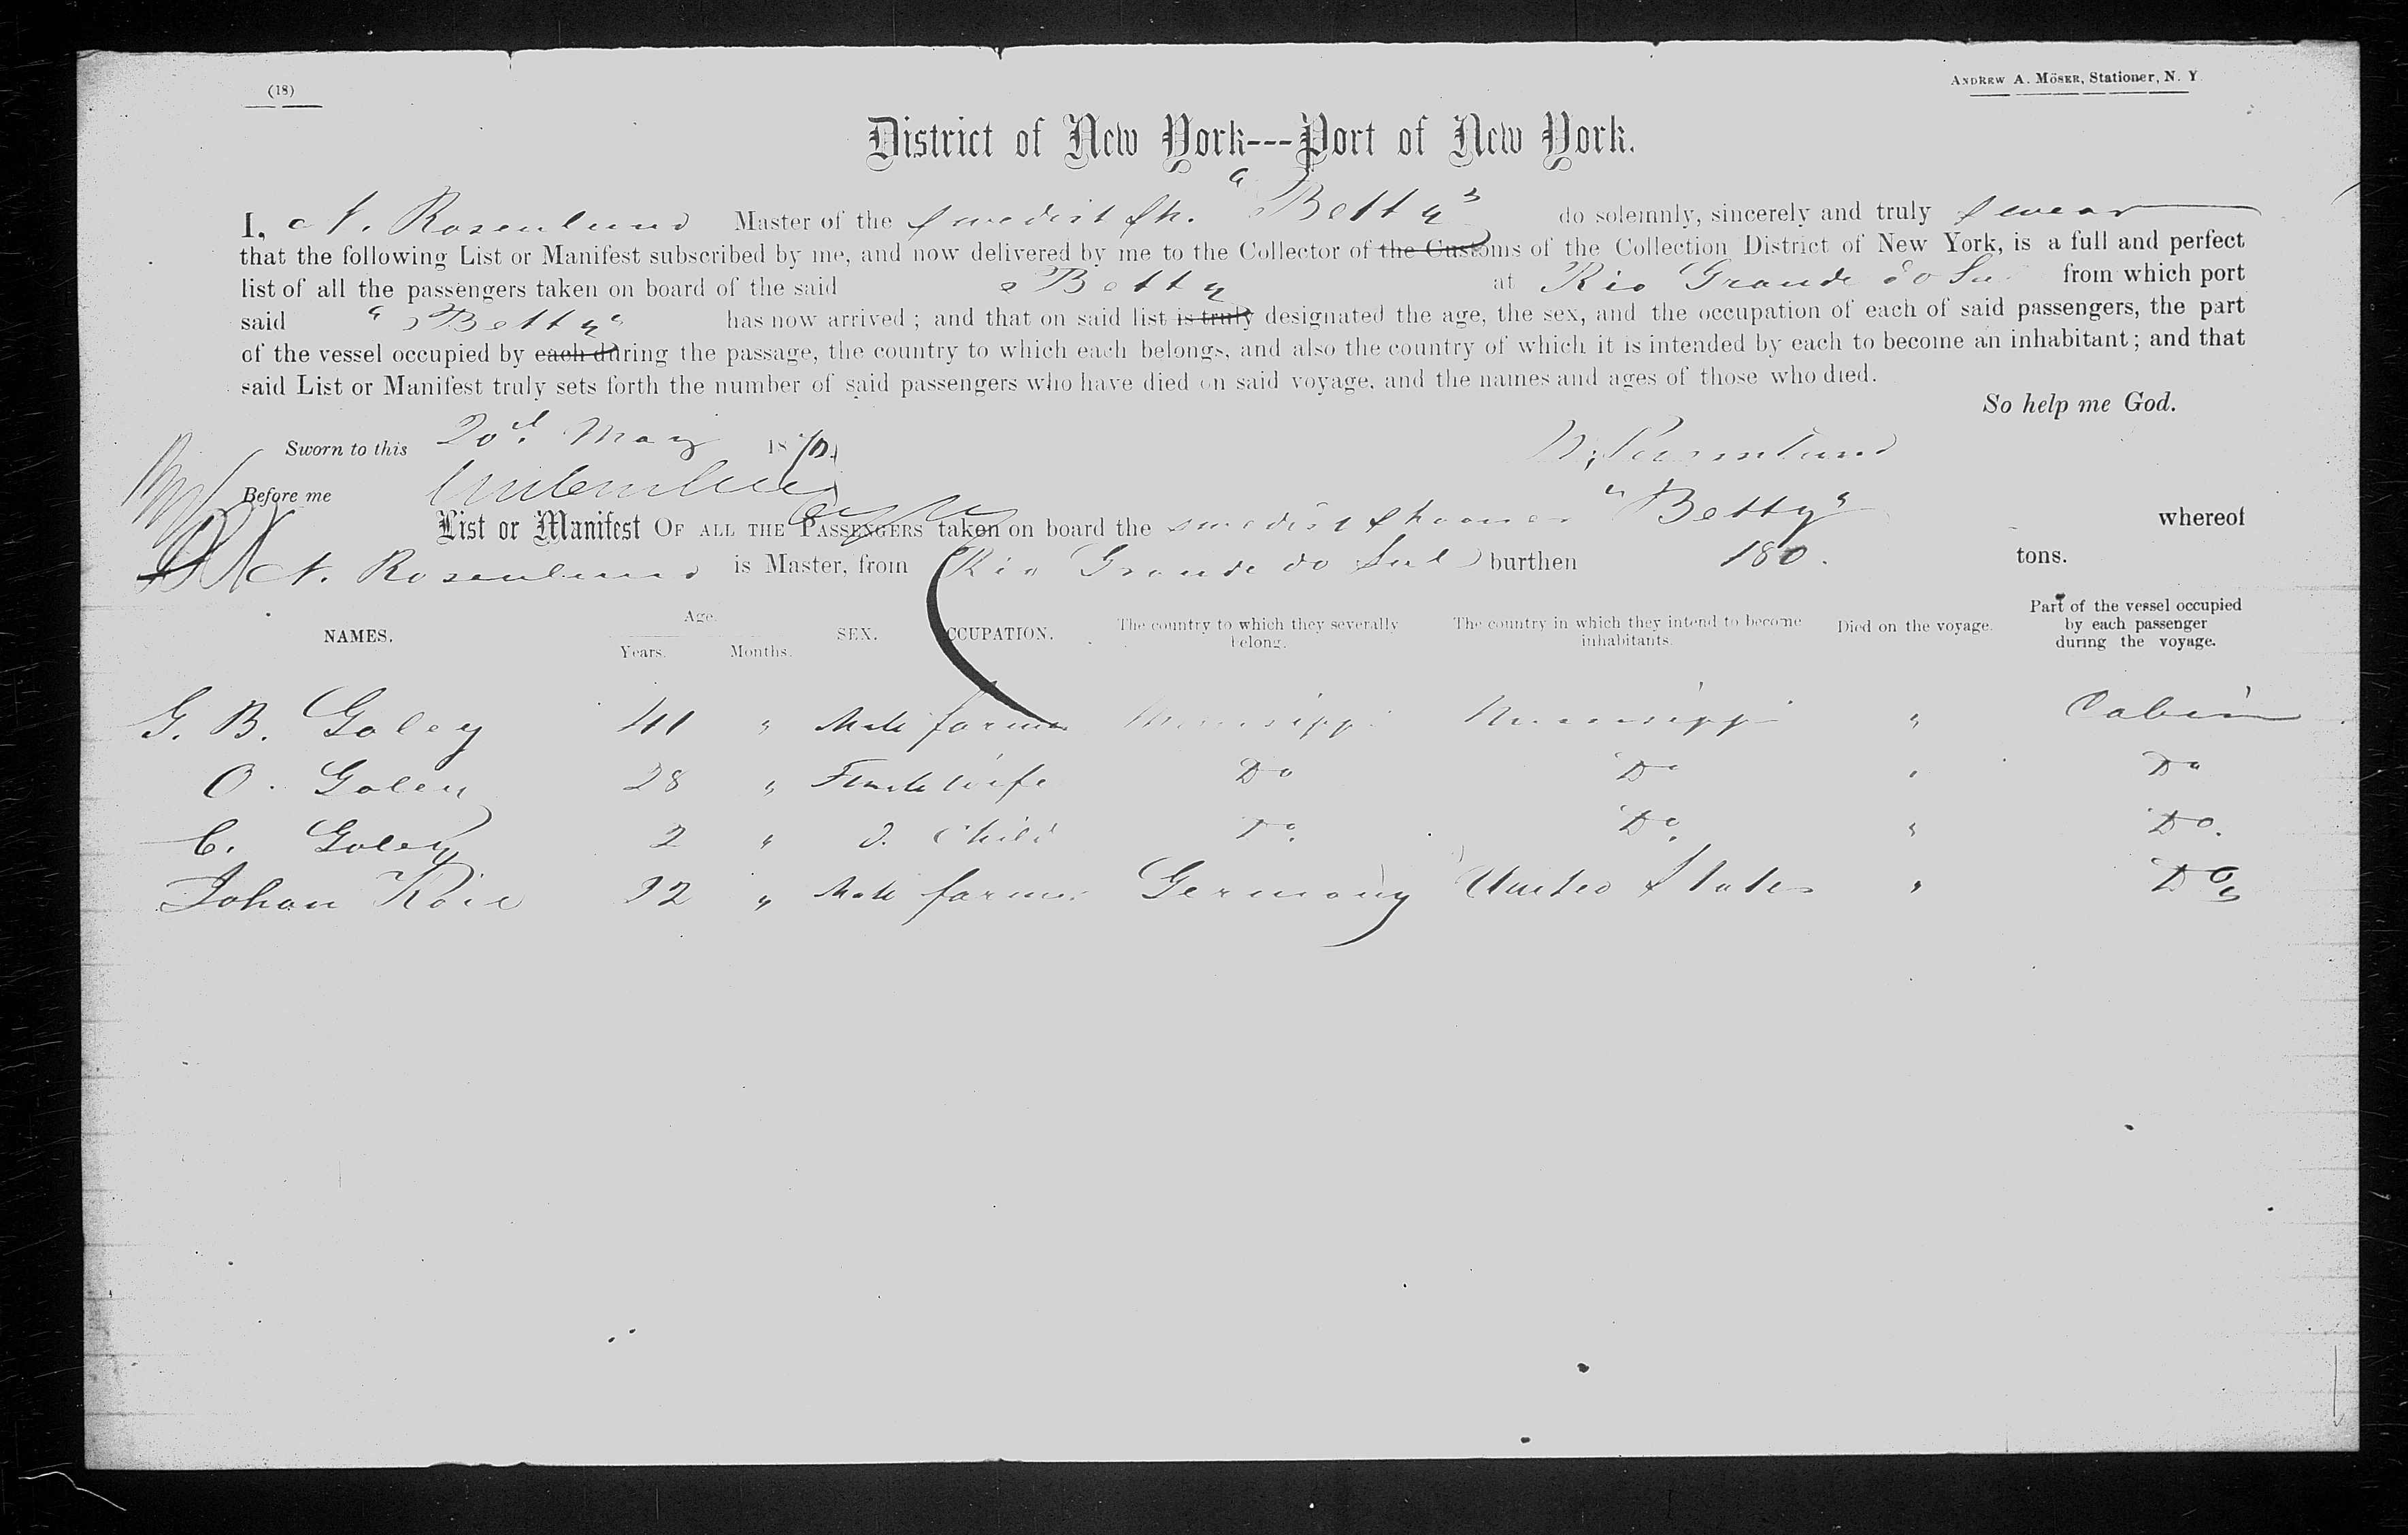 (18)
ANDREW A. MÖSER, Stationer, N. Y.
District of New York---Port of New York.
I, N. Rosenlund Master of the Swedish Sch. "Betty" do solemnly, sincerely and truly swear
that the following List or Manifest subscribed by me, and now delivered by me to the Collector of the Customs of the Collection District of New York, is a full and perfect
list of all the passengers taken on board of the said Betty at Rio Grande do Sul from which port
said "Betty" has now arrived; and that on said list is truly designated the age, the sex, and the occupation of each of said passengers, the part
of the vessel occupied by each during the passage, the country to which each belongs, and also the country of which it is intended by each to become an inhabitant; and that
said List or Manifest truly sets forth the number of said passengers who have died on said voyage, and the names and ages of those who died.
So help me God.
Sworn to this 20d. May 1870. N. Rosenlund
Before me
List or Manifest OF ALL THE PASSENGERS taken on board the Swedish "Betty" whereof
N. Rosenlund is Master, from Rio Grande do Sul burthen 180. tons.
NAMES. Age. Years. Months. SEX. OCCUPATION. The country to which they severally belong. The country in which they intend to become inhabitants. Died on the voyage. Part of the vessel occupied by each passenger during the voyage.
G. B. Goley 41 " Male farmer Mississippi Mississippi " Cabin
O. Goley 28 " Female Wife Do Do " Do
C. Goley 2 " d. Child Do. Do. " Do.
Johan 22 " Male farmer Germany United States " Do